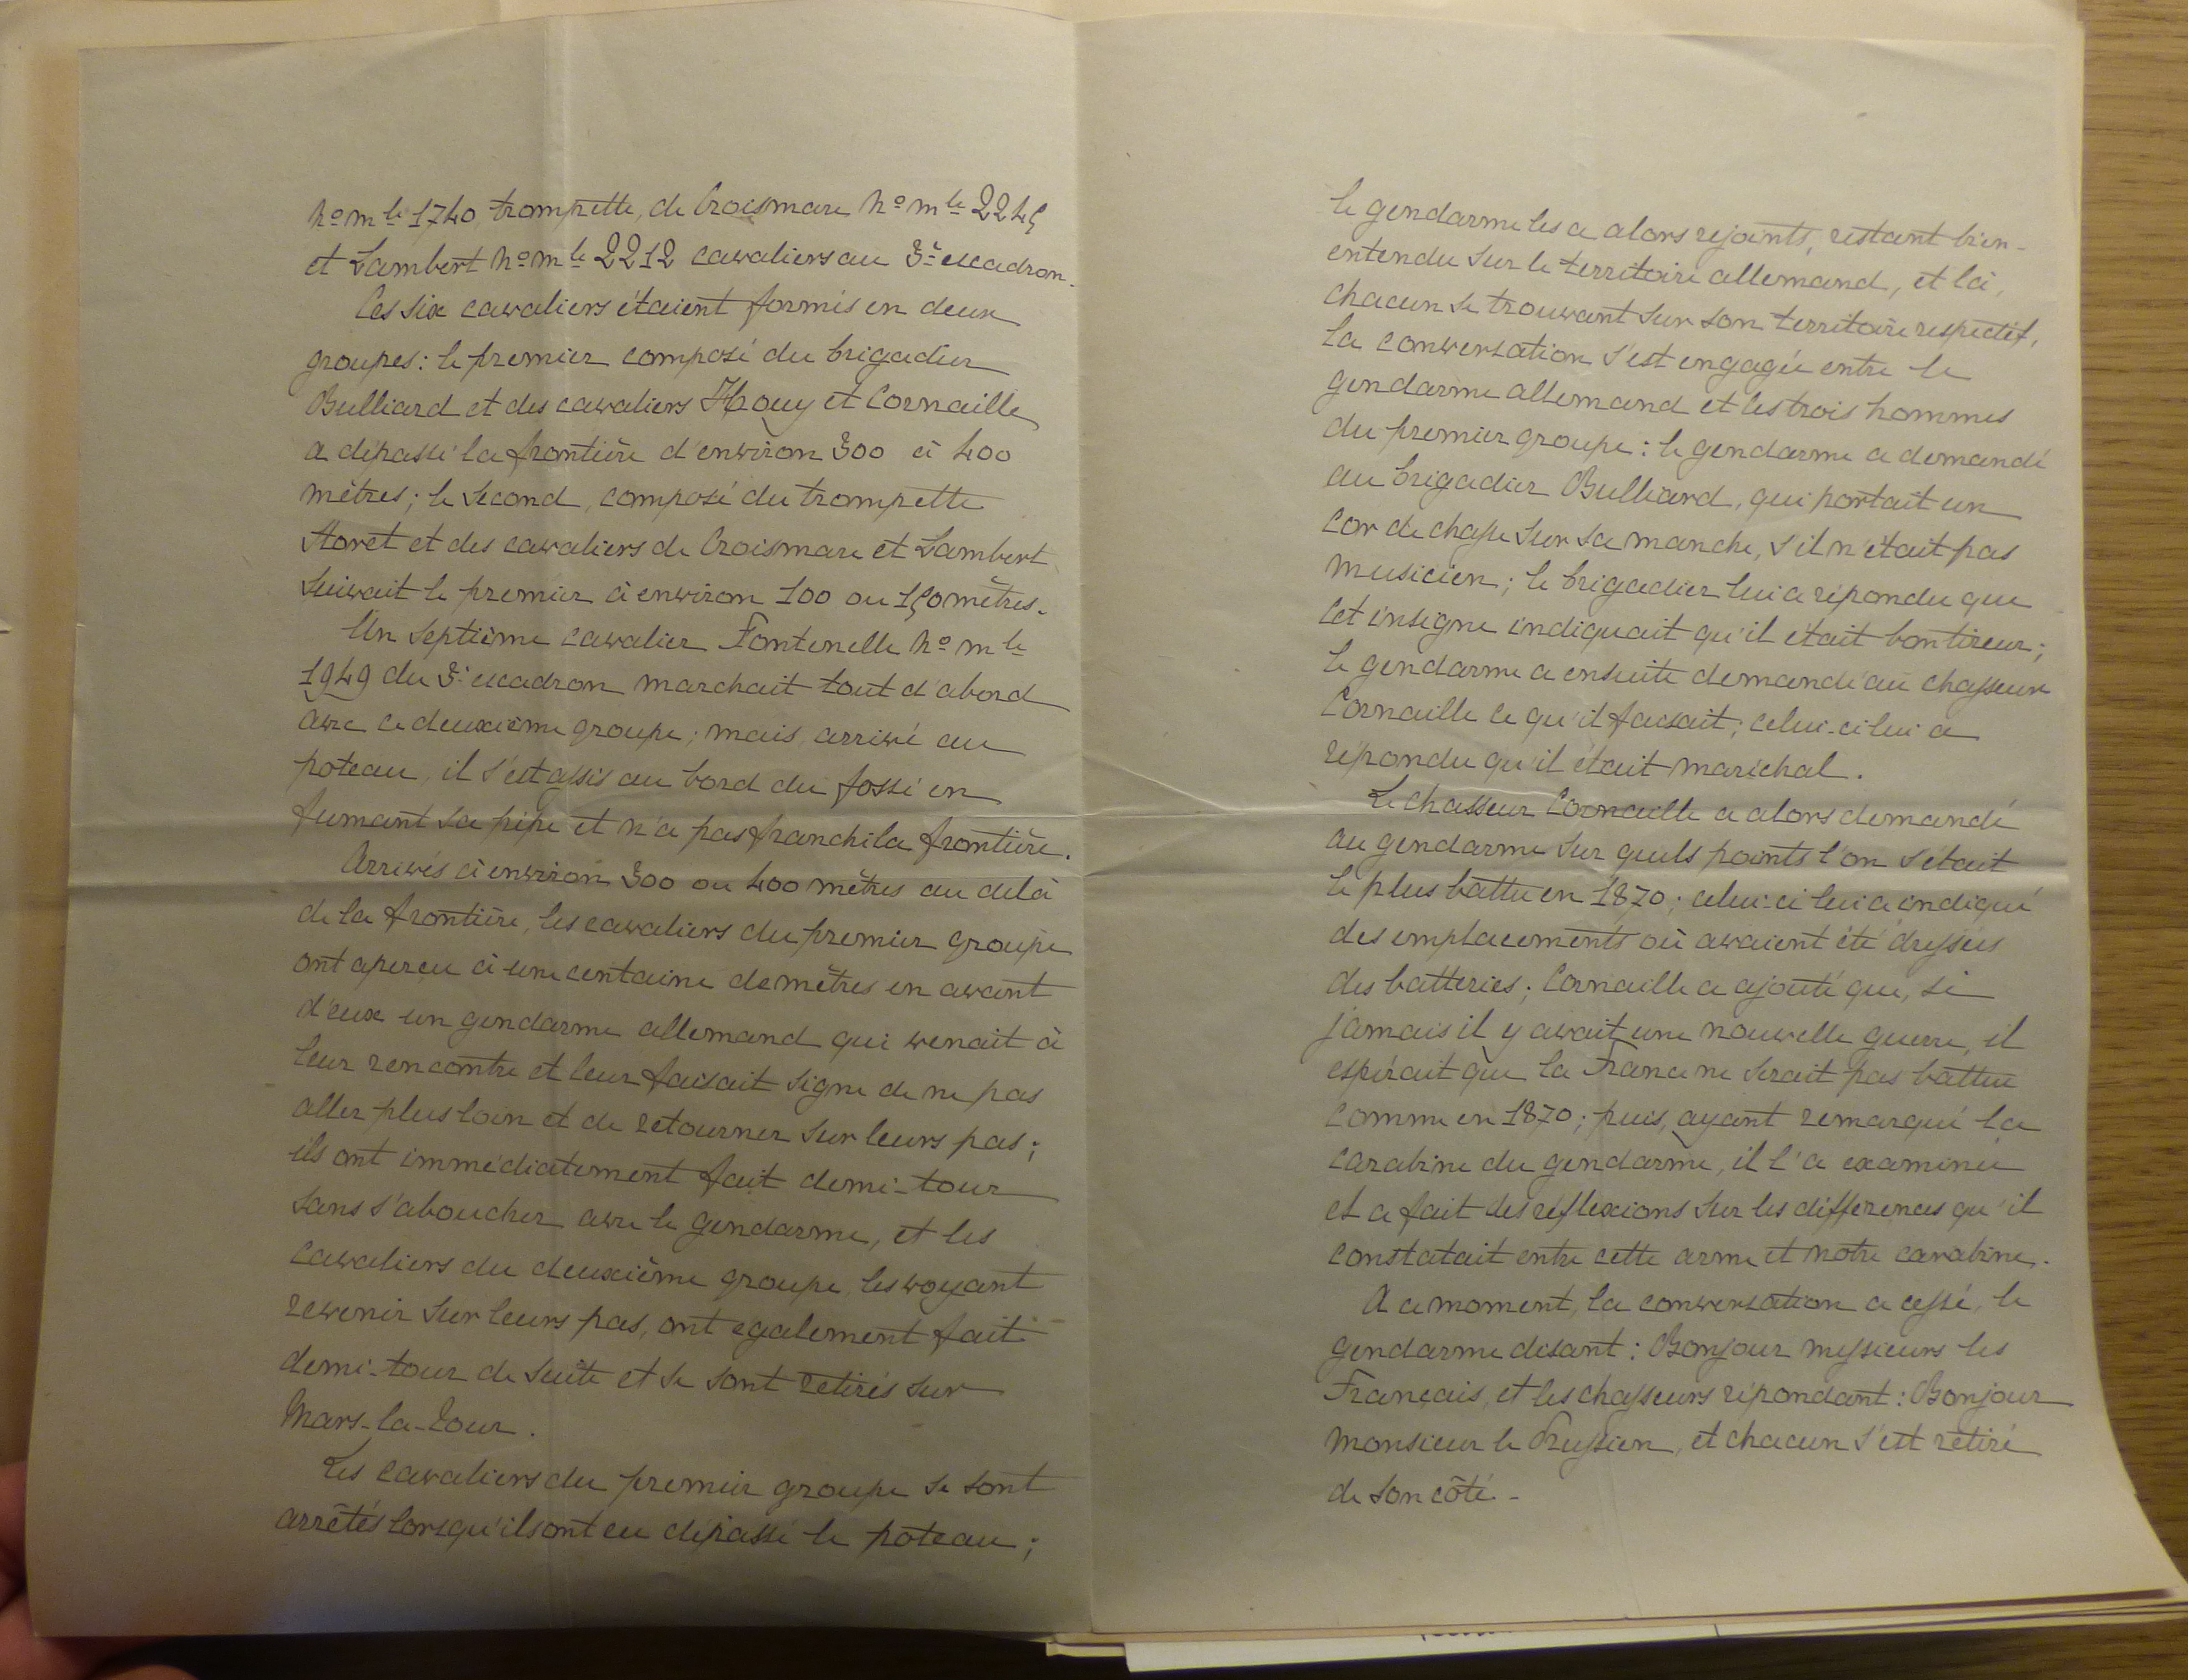 no mle 1740, trompette, de Croismare no mle 2245
et Lambert no mle 2212 cavaliers au 3e escadron.
Ces six cavaliers étaient formés en deux
groupes : le premier composé du brigadier
Bulliard et des cavaliers Houy et Cornaille
a dépassé la frontière d'environ 300 à 400
mètres ; le second, composé du trompette
Storet et des cavaliers de Croismare et Lambert
suivait le premier à environ 100 ou 150 mètres.
Un septième cavalier Fontenelle no mle
1949 du 3e escadron marchait tout d'abord
avec ce deuxième groupe ; mais, arrivé au
poteau, il s'est assis au bord du fossé en
fumant sa pipe et n'a pas franchi la frontière.
Arrivés à environ 300 ou 400 mètres au delà
de la frontière, les cavaliers du premier groupe
ont aperçu à une centaine de mètres en avant
d'eux un gendarme allemand qui venait à
leur rencontre et leur faisait signe de ne pas
aller plus loin et de retourner sur leurs pas ;
ils ont immédiatement fait demi-tour
sans s'aboucher avec le gendarme, et les
cavaliers du deuxième groupe, les voyant
revenir sur leurs pas, ont egalement fait
demi-tour de suite et se sont retirés sur
Mars-la-Tour.
Les cavaliers du premier groupe se sont
arrêtés lorsqu'ils ont eu dépassé le poteau ;
le gendarme les a alors rejoints, restant bien-
entendu sur le territoire allemand, et là,
chacun se trouvant sur son territoire respectif,
la conversation s'est engagée entre le
gendarme allemand et les trois hommes
du premier groupe : le gendarme a demandé
au brigadier Bulliard, qui portait un
cor de chasse sur sa manche, s'il n'était pas
musicien ; le brigadier lui a répondu que
cet insigne indiquait qu'il était bon tireur ;
le gendarme a ensuite demandé au chasseur
Cornaille ce qu'il faisait ; celui-ci lui a
répondu qu'il était maréchal.
Le chasseur Cornaille a alors demandé
au gendarme sur quels points l'on s'était
le plus battu en 1870 ; celui-ci lui a indiqué
des emplacements où avaient été dressées
des batteries ; Cornaille a ajouté que, si
jamais il y avait une nouvelle guerre, il
espérait que la France ne serait pas battue
comme en 1870 ; puis, ayant remarqué la
carabine du gendarme, il l'a examinée
et a fait des réflexions sur les différences qu'il
constatait entre cette arme et notre carabine.
A ce moment, la conversation a cessé, le
gendarme disant : Bonjour messieurs les
Français, et les chasseurs répondant : Bonjour
monsieur le Prussien, et chacun s'est retiré
de son côté. -